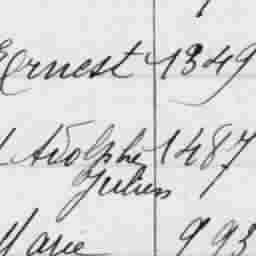 Ernest 1349
Adolphe 1487
Julien
Marie 993